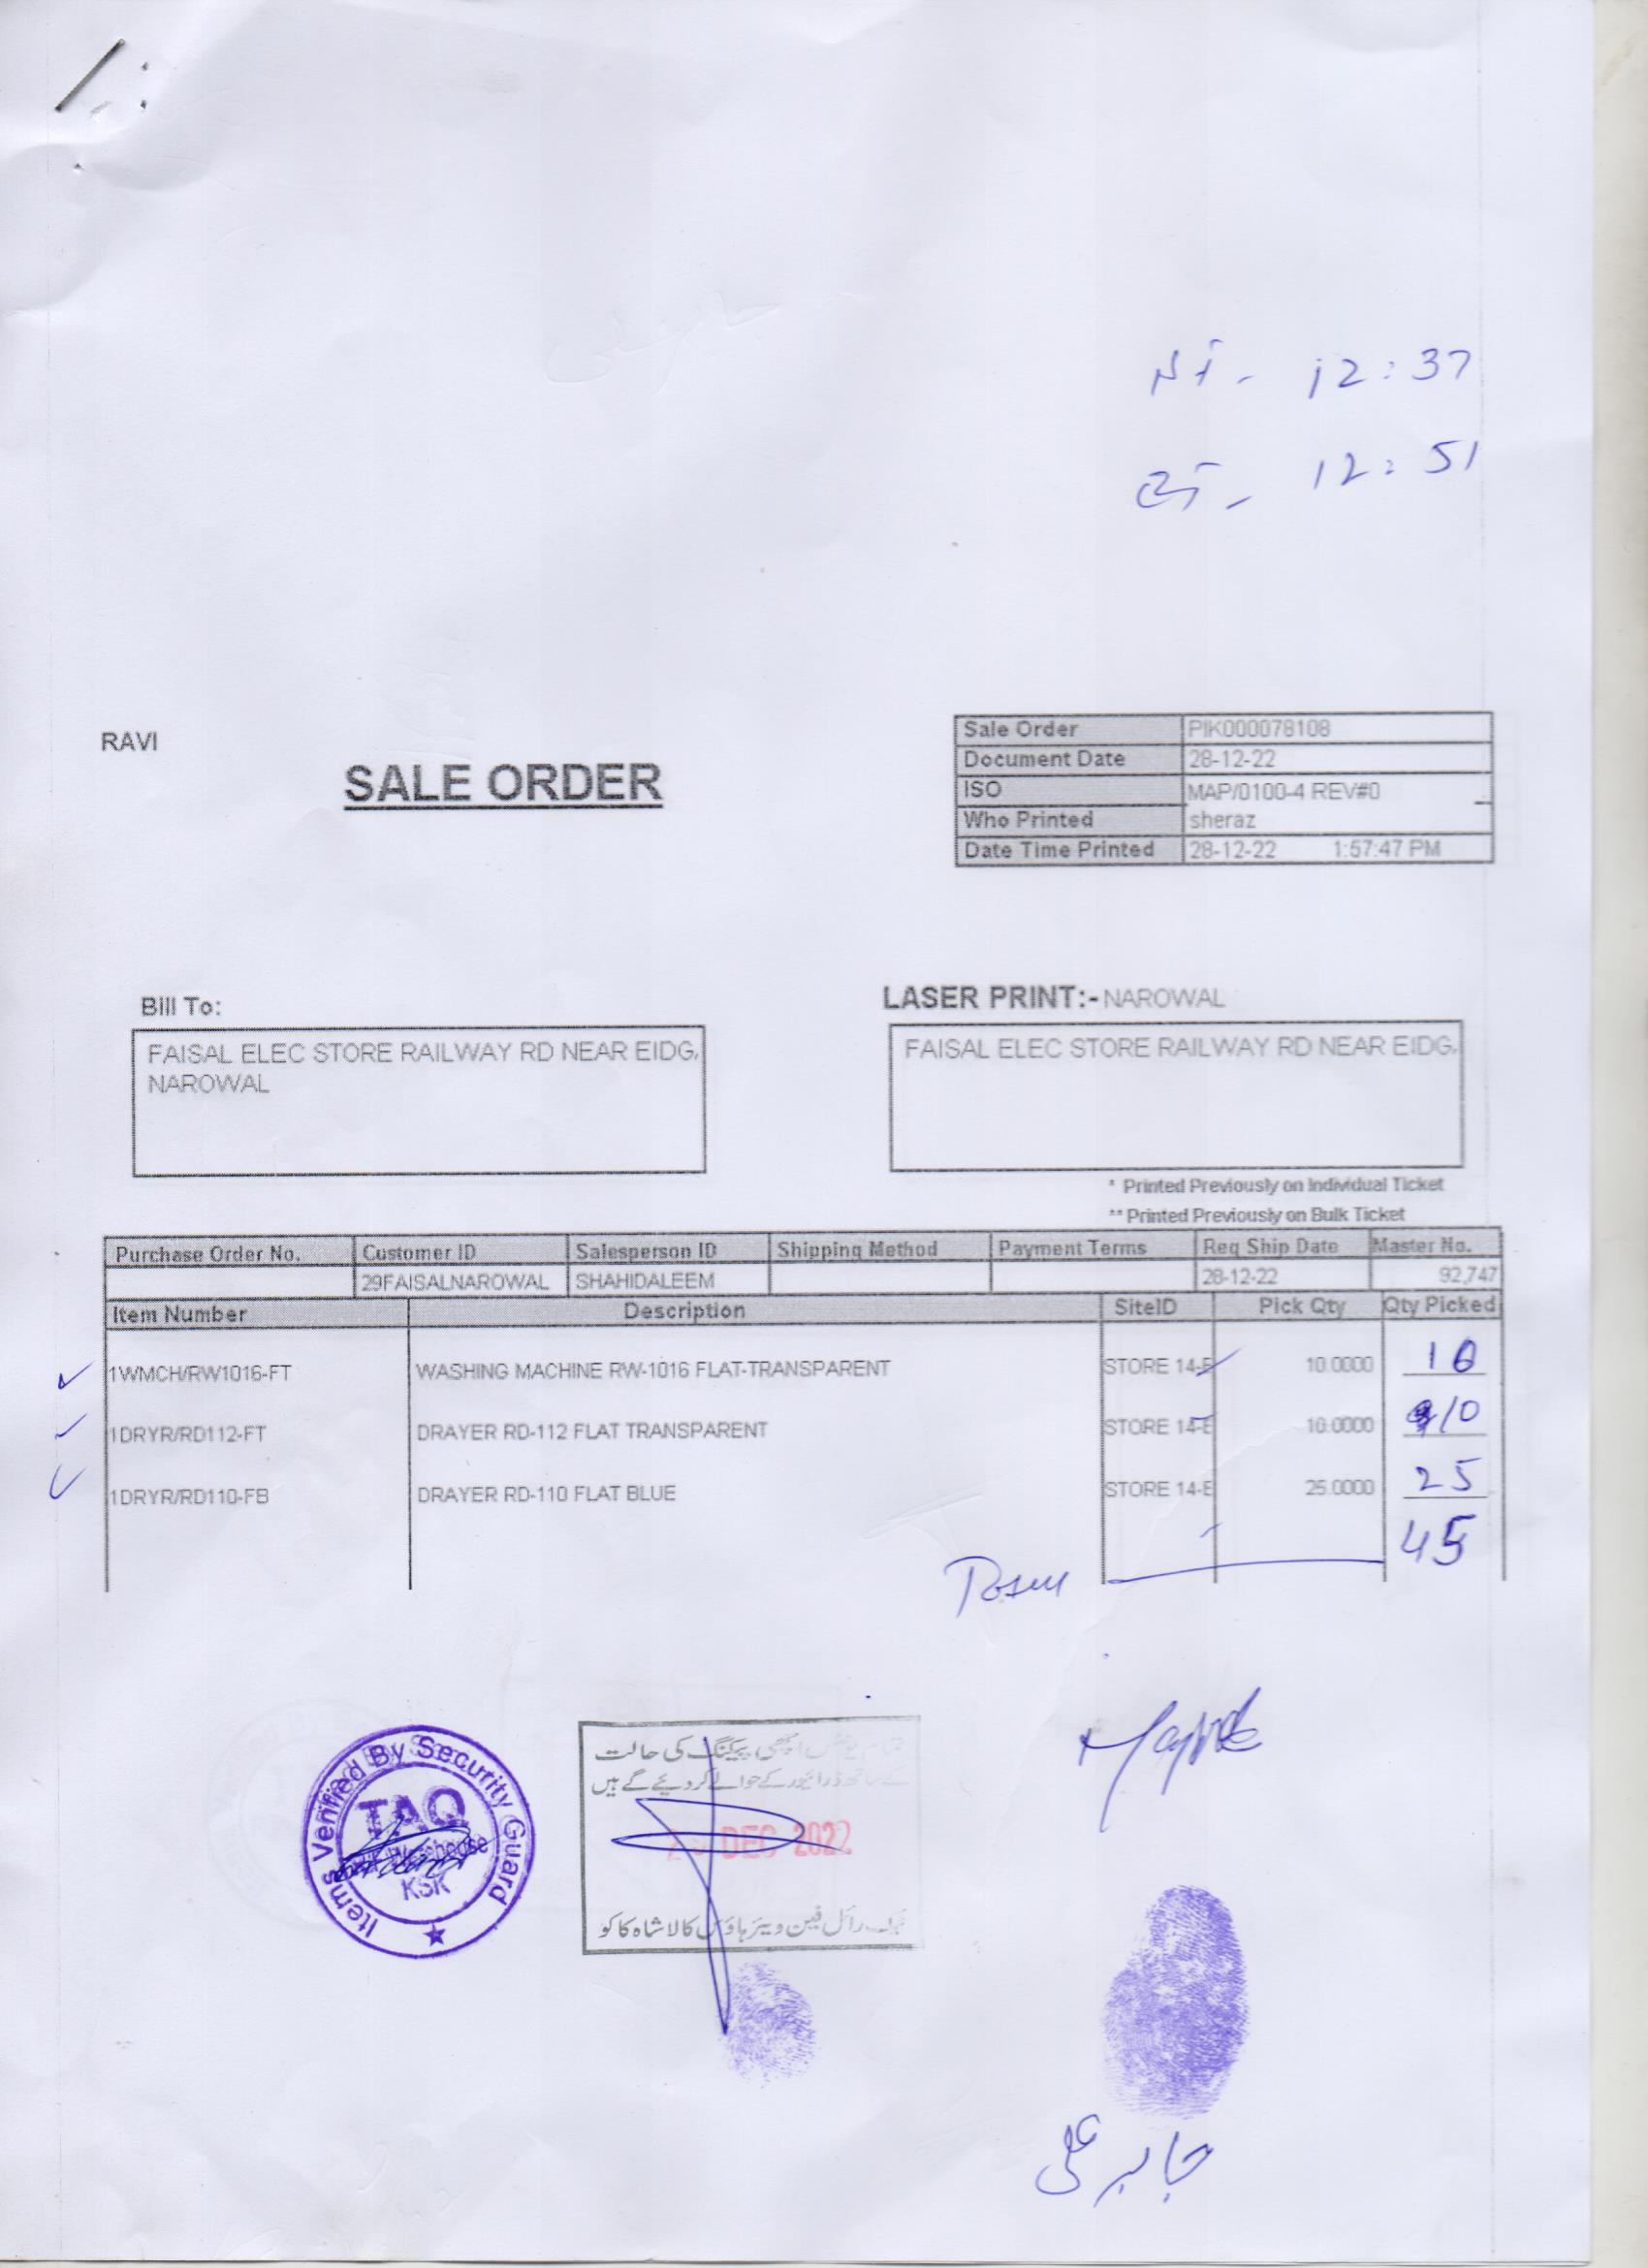 12:37
12:51
RAVI
SALE ORDER
Sale Order PIK000078108
Document Date 28-12-22
ISO MAP/0100-4 REV#0
Who Printed sheraz
Date Time Printed 28-12-22 1:57:47 PM
Bill To:
FAISAL ELEC STORE RAILWAY RD NEAR EIDG,
NAROWAL
LASER PRINT:- NAROWAL
FAISAL ELEC STORE RAILWAY RD NEAR EIDG,
* Printed Previously on Individual Ticket
** Printed Previously on Bulk Ticket
Purchase Order No. Customer ID Salesperson ID Shipping Method Payment Terms Req Ship Date Master No.
29FAISALNAROWAL SHAHIDALEEM 28-12-22 92,747
Item Number Description SiteID Pick Qty Qty Picked
1WMCH/RW1016-FT WASHING MACHINE RW-1016 FLAT-TRANSPARENT STORE 14-E 10.0000 10
1DRYR/RD112-FT DRAYER RD-112 FLAT TRANSPARENT STORE 14-E 10.0000 10
1DRYR/RD110-FB DRAYER RD-110 FLAT BLUE STORE 14-E 25.0000 25
45
Items Verified By Security Guard
TAQ
Warehouse
KSK
اچھی پیکنگ کی حالت
کے ساتھ ڈرائیور کے حوالے کر دیئے گے ہیں
DEC 2022
رائل فین ویئر ہاؤس کالا شاہ کاکو
جابر علی